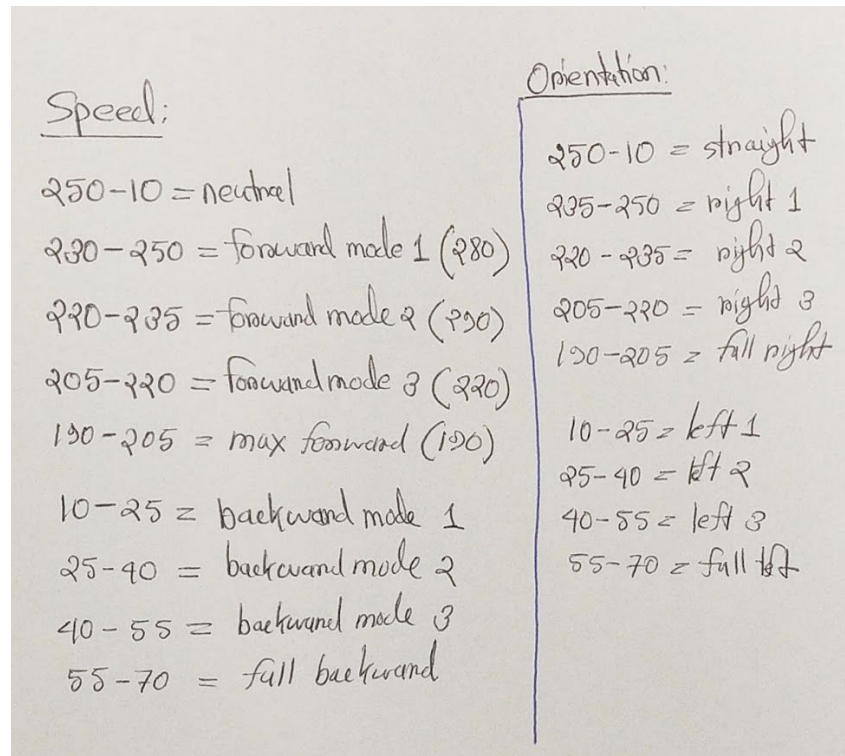 Speed:
250-10 = neutral
230-250 = forward mode 1 (280)
220-235 = forward mode 2 (290)
205-220 = forward mode 3 (220)
190-205 = max forward (190)
10-25 = backward mode 1
25-40 = backward mode 2
40-55 = backward mode 3
55-70 = full backward
Orientation:
250-10 = straight
235-250 = right 1
220-235 = right 2
205-220 = right 3
190-205 = full right
10-25 = left 1
25-40 = left 2
40-55 = left 3
55-70 = full left